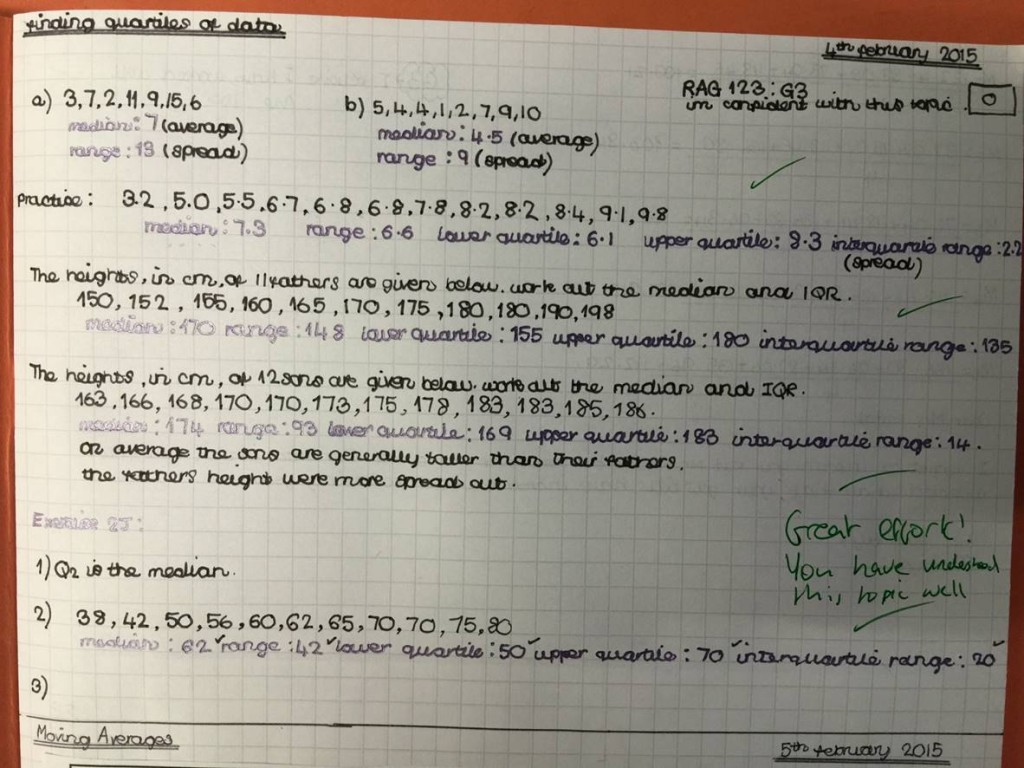 finding quartiles of data
4th february 2015
a) 3,7,2,11,9,15,6
median: 7 (average)
range: 13 (spread)
b) 5,4,4,1,2,7,9,10
median: 4.5 (average)
range: 9 (spread)
RAG 123: G3
im confident with this topic. 0
Practise: 3.2, 5.0, 5.5, 6.7, 6.8, 6.8, 7.8, 8.2, 8.2, 8.4, 9.1, 9.8
median: 7.3 range: 6.6 lower quartile: 6.1 upper quartile: 8.3 interquartile range: 2.2
(spread)
The heights, in cm, of 11 fathers are given below. work out the median and IQR.
150, 152, 155, 160, 165, 170, 175, 180, 180, 190, 198
median: 170 range: 148 lower quartile: 155 upper quartile: 180 interquartile range: 135
The heights, in cm, of 12 sons are given below. work out the median and IQR.
163, 166, 168, 170, 170, 173, 175, 178, 183, 183, 185, 186.
median: 174 range: 93 lower quartile: 169 upper quartile: 183 interquartile range: 14.
on average the sons are generally taller than their fathers.
the fathers height were more spread out.
Exercise 2J:
Great effort!
You have understood
this topic well
1) Q2 is the median.
2) 38, 42, 50, 56, 60, 62, 65, 70, 70, 75, 80
median: 62 ✓ range: 42 ✓ lower quartile: 50 ✓ upper quartile: 70 ✓ interquartile range: 20 ✓
3)
Moving Averages
5th february 2015